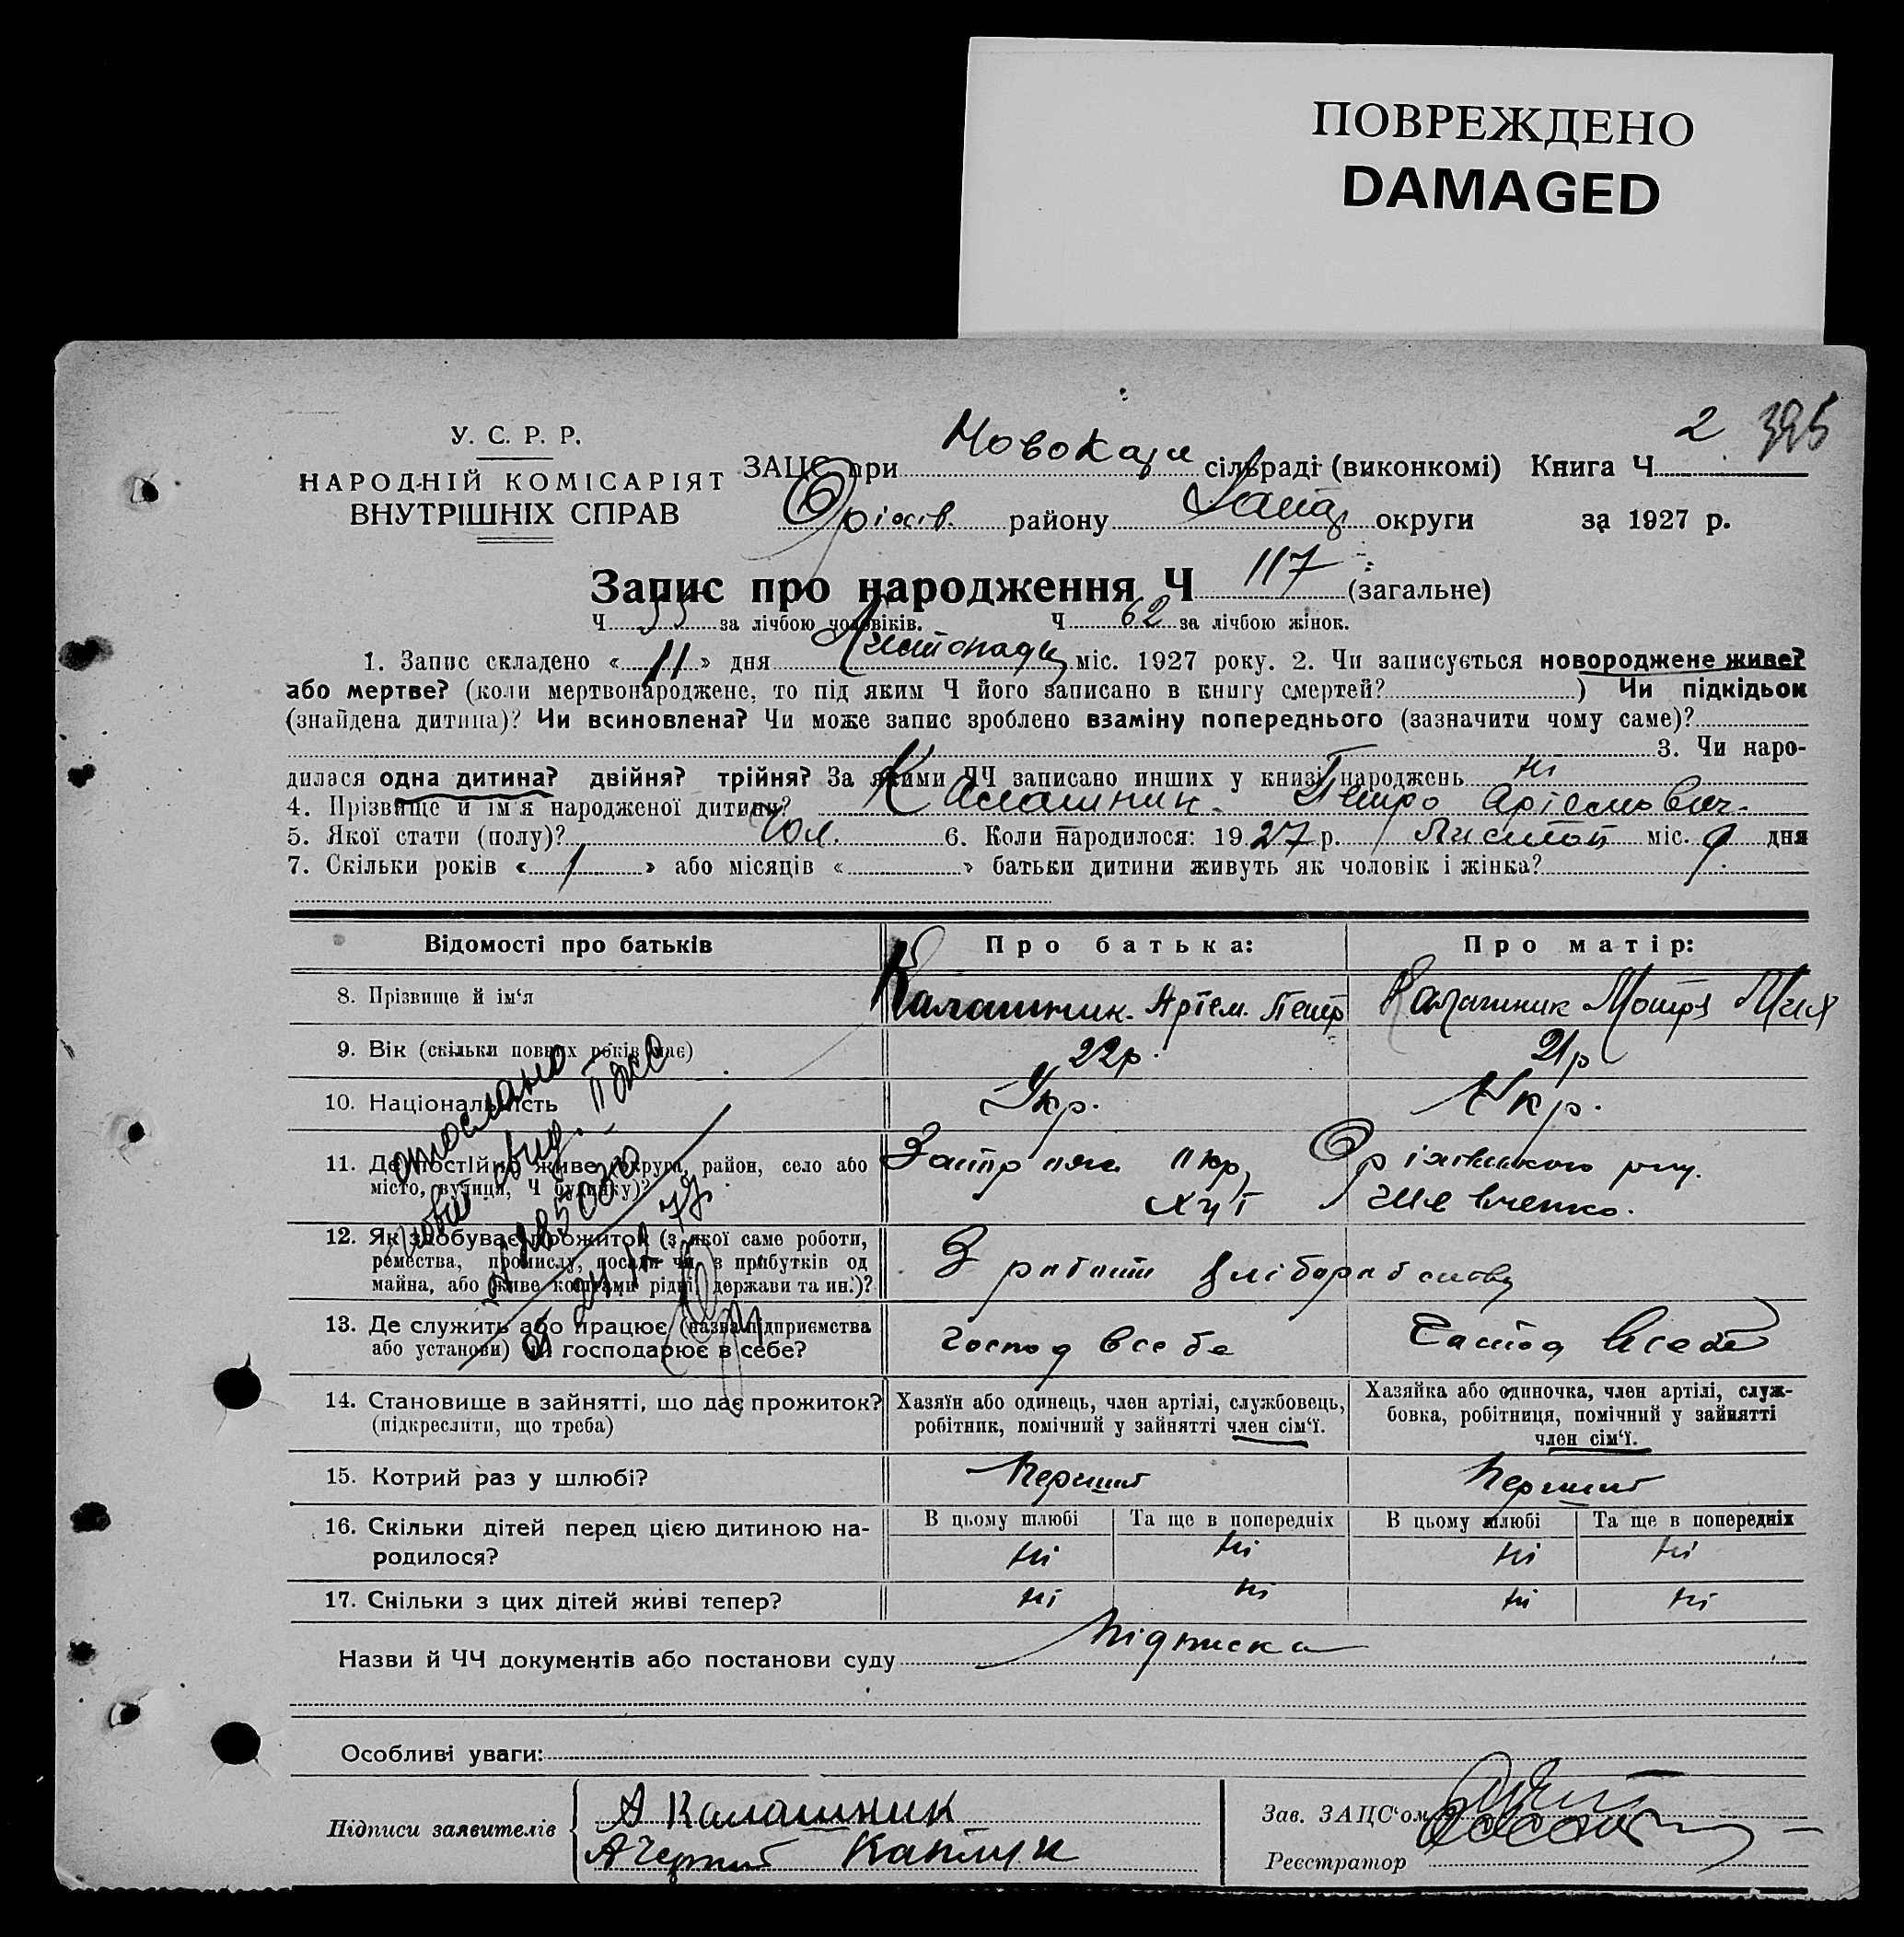 ПОВРЕЖДЕНО
DAMAGED
2 395
У. С. Р. Р.
НАРОДНІЙ КОМІСАРІЯТ
ВНУТРІШНІХ СПРАВ
ЗАЦС при Новокарл сільраді (виконкомі) Книга Ч
Оріхів. району Запор округи за 1927 р.
Запис про народження Ч 117 (загальне)
Ч 55 за лічбою чоловіків. Ч 62 за лічбою жінок.
1. Запис складено « 11 » дня Листопаду міс. 1927 року. 2. Чи записується новороджене живе?
або мертве? (коли мертвонароджене, то під яким Ч його записано в книгу смертей? ) Чи підкідьок
(знайдена дитина)? Чи всиновлена? Чи може запис зроблено взаміну попереднього (зазначити чому саме)?
3. Чи наро-
дилася одна дитина? двійня? трійня? За якими ЧЧ записано инших у книзі народжень ні
4. Прізвище й ім'я народженої дитини? Калашник Петро Артемович.
5. Якої стати (полу)? Чол. 6. Коли народилося: 1927 р. Листоп міс. 9 дня
7. Скільки років « 1 » або місяців « » батьки дитини живуть як чоловік і жінка?
Відомості про батьків Про батька: Про матір:
8. Прізвище й ім'я Калашник Артем. Петр Калашник Мотря Мих
9. Вік (скільки повних років має) 22р. 21р
10. Національність Укр. Укр.
11. Де постійно живе (округа, район, село або Оріхівського
місто, вулиця, Ч будинку)? хут Шевченко.
12. Як здобуває прожиток (з якої саме роботи, З работи хліборобства
ремества, промислу, посади чи з прибутків од
майна, або живе коштами рідні, держави та ин.)?
13. Де служить або працює (назва підприємства Господ всебе Господ всебе
або установи) чи господарює в себе?
14. Становище в зайнятті, що дає прожиток? Хазяїн або одинець, член артілі, службовець, Хазяйка або одиночка, член артілі, служ-
(підкреслити, що треба) робітник, помічний у зайнятті член сім'ї. бовка, робітниця, помічний у зайнятті
член сім'ї.
15. Котрий раз у шлюбі? Перший Перший
16. Скільки дітей перед цією дитиною на- В цьому шлюбі Та ще в попередніх В цьому шлюбі Та ще в попередніх
родилося? ні ні ні ні
17. Скільки з цих дітей живі тепер? ні ні ні ні
Назви й ЧЧ документів або постанови суду Підписка
Особливі уваги:
Підписи заявителів А Калашник
Зав. ЗАЦС'ом
Реєстратор